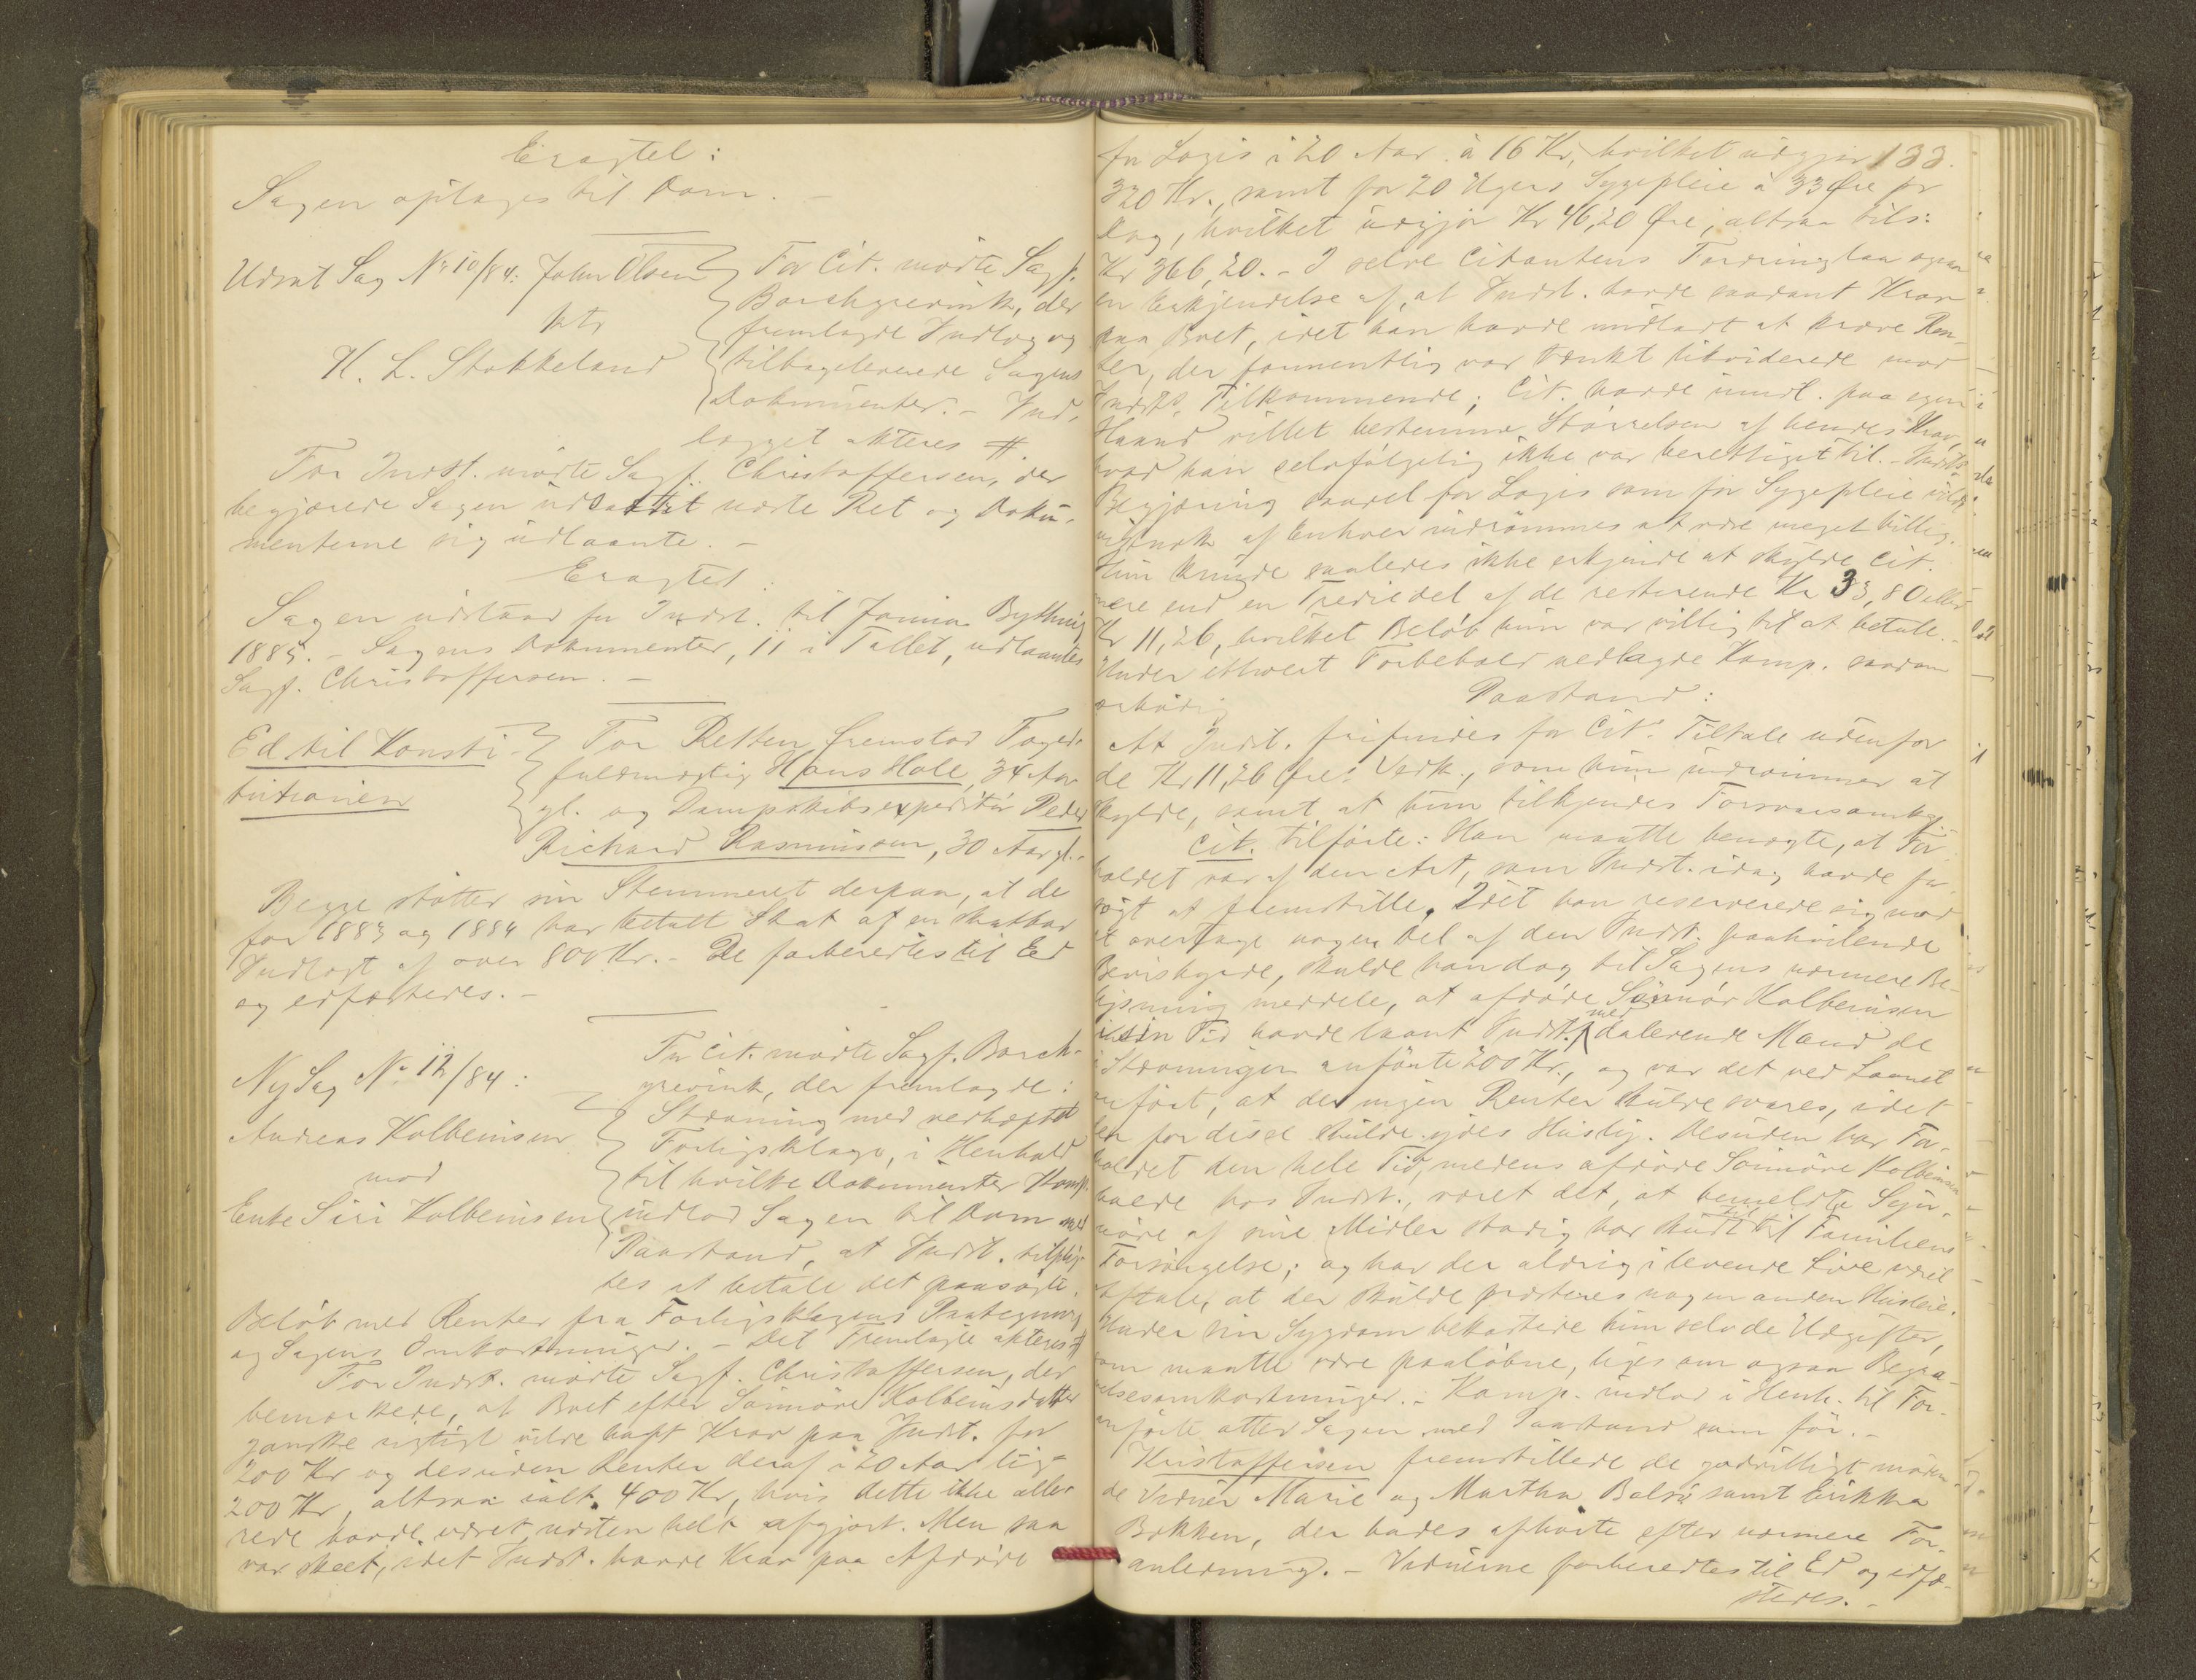 Eragtet:
Sagen optages til Dom. –
Udsat Sag No 10/84: John Olsen
ktr
H. L. Stokkeland
For Cit. mødte Sagf.
Borchgrevink, der
fremlagde Indlæg og
tilbageleverede Sagens
Dokumenter. – Ind-
lægget akteres #
For Indst. mødte Sagf. Christoffersen, der
begjærede Sagen udsat til næste Ret og Doku-
menterne sig udlaante. –
Eragtet:
Sagen udstaar for Indst. til Bythingst
1885. – Sagens Dokumenter, 11 i Tallet, udlaantes
Sagf. Christoffersen. –
Ed til Konsti-
tutionen
For Retten fremstod Foged-
fuldmægtig Hans Holl, 34 Aar
gl. og Dampskibsexpeditør Peder
Richard Rasmussen, 30 Aar gl. –
Begge støtter sin Stemmeret derpaa, at de
for 1883 og 1884 har betalt Skat af en skatbar
Indtægt af over 800 Kr. – De forberedtes til Ed
og edfæstedes. –
Ny Sag No 12/84:
Andreas Kolbeinsen
mod
Enke Siri Kolbeinsen
For Cit. mødte Sagf. Borch-
grevink, der fremlagde:
Stævning med vedhæftet
Forligsklage, i Henhold
til hvilke Dokumenter Komp.
indlod Sagen til Dom med
Paastand, at Indst. tilplig-
tes at betale det paasøgte
Beløb med Renter fra Forligsklagens Paategning
og Sagens Omkostninger. – Det Fremlagte akteres #
For Indst. mødte Sagf. Christoffersen, der
bemærkede, at Boet efter Sønnøve Kolbeinsdatter
ganske rigtigt vilde haft Krav paa Indst. for
200 Kr og desuden Renter deraf i 20 Aar lig
200 Kr, altsaa ialt 400 Kr, hvis dette ikke alle-
rede havde været næsten helt afgjort. Men saa
var skeet, idet Indst. havde Krav paa Afdøde
133.
for Logis i 20 Aar à 16 Kr, hvilket udgjør
320 Kr., samt for 20 Ugers Sygepleie à 33 Øre pr
Dag, hvilket udgjør Kr 46,20 Øre, altsaa tils:
Kr 366,20. – I selve Citantens Fordring laa ogsaa
en Erkjendelse af, at Indst. havde saadant Krav
paa Boet, idet han havde undladt at kræve Ren-
ter, der formentlig var tænkt likviderede mod
Indsts. Tilkommende; Cit. havde imidl. paa egen
Haand villet bestemme Størrelsen af hendes Krav,
hvad han selvfølgelig ikke var berettiget til. – Indsts
Begjæring saavel for Logis som for Sygepleie vilde
vistnok af Enhver indrømmes at være meget billig.
Hun kunde saaledes ikke erkjende at skylde Cit.
mere end en Trediedel af de resterende Kr 33,80 eller
Kr 11,26, hvilket Beløb hun var villig til at betale. –
Under ethvert Forbehold nedlagde Komp. saadan
ærbødig Paastand:
At Indst. frifindes for Cits Tiltale udenfor
de Kr 11,26 Øres Vedk., som hun indrømmer at
skylde, samt at hun tilkjendes Forsvarsomkg.
Cit. tilførte: Han maatte benægte, at For-
holdet var af den Art, som Indst. idag havde for-
søgt at fremstille. Idet han reserverede sig mod
at overtage nogen Del af den Indst. paahvilende
Bevisbyrde, skulde han dog til Sagens nærmere Be-
lysning meddele, at afdøde Sønnøv Kolbeinsen
i sin Tid havde laant Indst.s med dalevende Mand de
i Stævningen anførte 200 Kr., og var det ved Laanet
anført, at der ingen Renter skulde svares, idet
der for disse skulde ydes Huslig. Desuden har For-
holdet den hele Tid, medens afdøde Sønnøve Kolbeinsen
boede hos Indst., været det, at bemeldte Syn-
nøve af sine Midler stadig har skudt til til Familiens
Forsørgelse; og har der aldrig i levende Live været
Aftale, at der skulde præsteres nogen anden Husleie.
Under sin Sygdom bekostede hun selv de Udgifter,
som maatte være paaløbne, ligesom ogsaa Begra-
velsesomkostninger. – Komp. indlod i Henh. til For-
anførte atter Sagen med Paastand som før. –
Kristoffersen fremstillede de godvilligt møden-
de Vidner Marie og Martha Bolsø samt Erikka
Bakken, der bades afhørte efter nærmere For-
anledning. – Vidnerne forberedtes til Ed og edfæ-
stedes. –